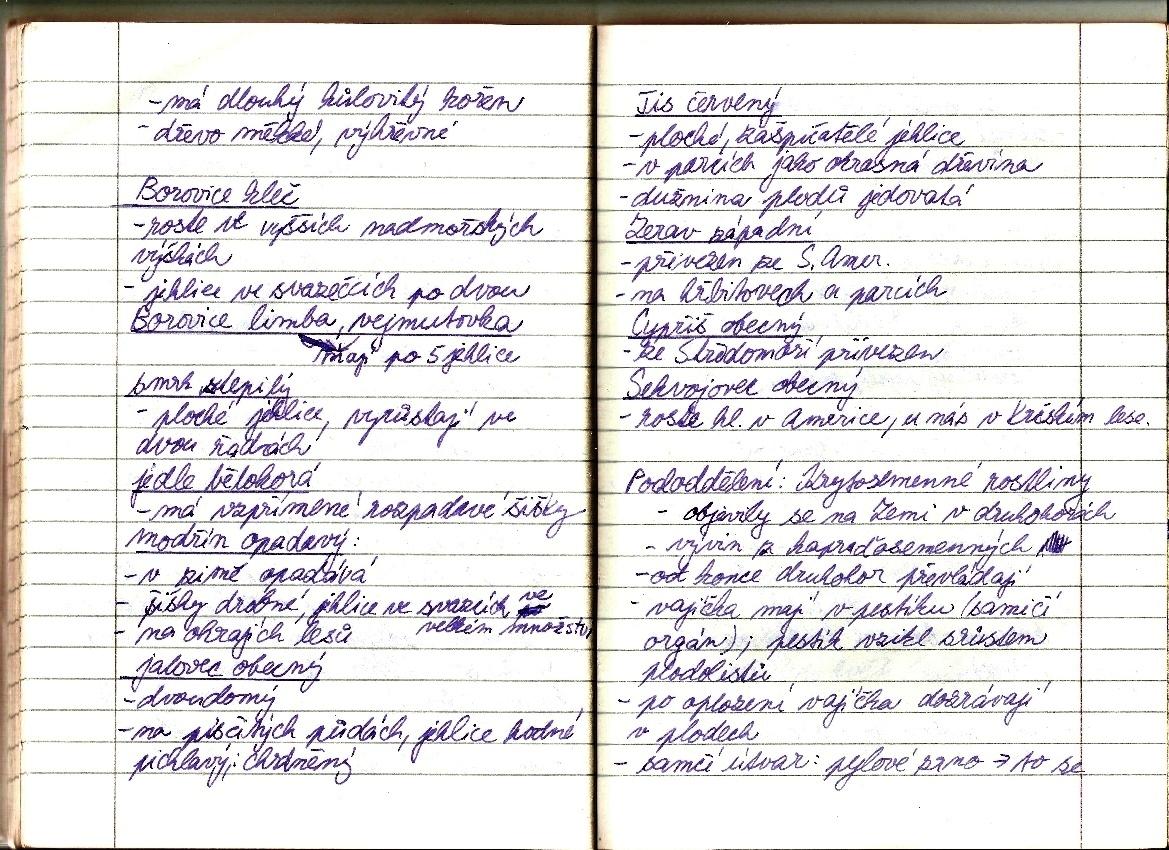 - má dlouhý kůlovitý kořen
- dřevo měkké, výhřevné
Borovice kleč
- roste ve vyšších nadmořských
výškách
- jehlice ve svazečcích po dvou
Borovice limba, vejmutovka
mají po 5 jehlice
smrk ztepilý
- ploché jehlice, vyrůstají ve
dvou řadách
jedle bělokorá
- má vzpřímené rozpadavé šišky
modřín opadavý:
- v zimě opadává
- šišky drobné, jehlice ve svazcích ve
- na okrajích lesů velkém množství
jalovec obecný
- dvoudomý
- na písčitých půdách, jehlice hodně
pichlavý; chráněný
Tis červený
- ploché, zašpičatělé jehlice
- v parcích jako okrasná dřevina
- dužnina plodů jedovatá
Zerav západní
- přivezen ze S. Amer.
- na hřbitovech a parcích
Cypřiš obecný
- ze Středomoří přivezen
Sekvojovec obecný
- roste hl. v Americe, u nás v Krčském lese.
Pododdělení: Krytosemenné rostliny
- objevily se na Zemi v druhohorách
- vývin z kapraďosemenných
- od konce druhohor převládají
- vajíčka mají v pestíku (samičí
orgán); pestík vznikl srůstem
plodolistů
- po oplození vajíčka dozrávají
v plodech
- samčí útvar: pylové zrno → to se